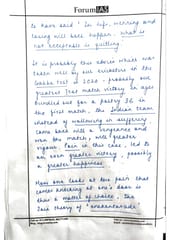 ForumIAS
to have said 'In life, winning and
losing will both happen. What is
not acceptable is quitting.
It is probably this advice which was
taken well by our cricketers in the
Gabba test in 2020 - probably our
greatest test match victory in ages
Bundled out for a paltry 36 in
the first match, the Indian team
instead of wallowing in suffering
came back with a vengeance and
won the match, with greater
vigour. Pain in this case, led to
an even greater victory, possibly
a greater happiness.
How one looks at the pain that
comes knocking at one's door is
thus a matter of choice. The
Jain theory of 'anekantavada'